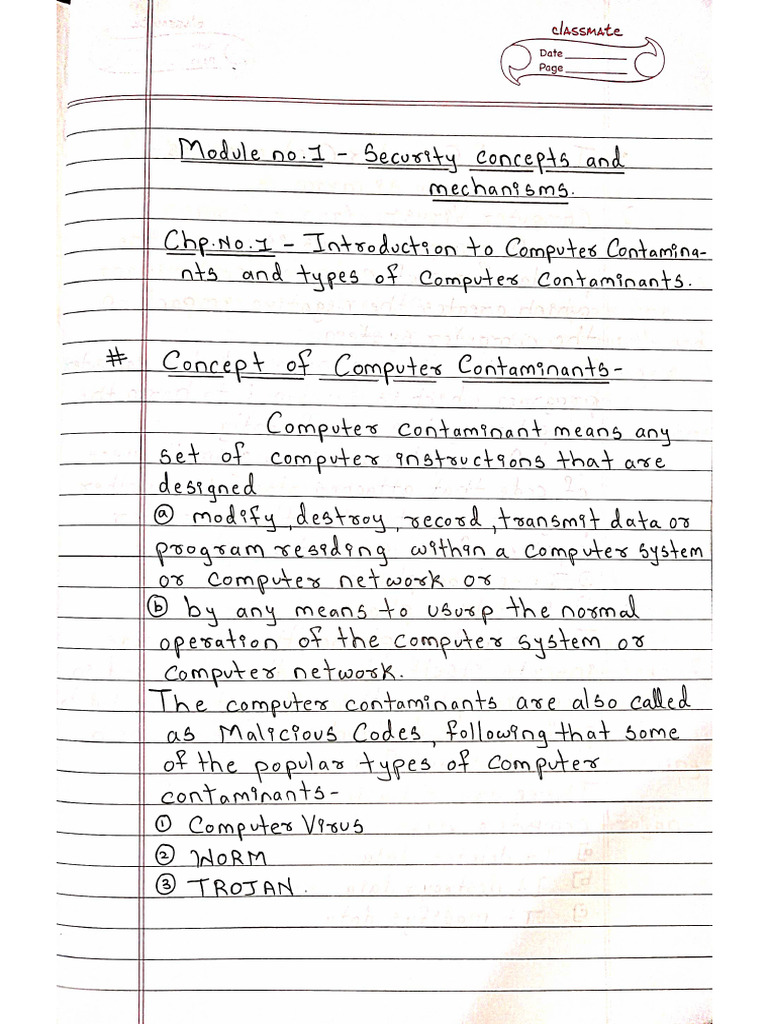 classmate
Date
Page
Module no.1 - Security concepts and
mechanisms.
Chp.No.1 - Introduction to Computer Contamina-
nts and types of Computer Contaminants.
# Concept of Computer Contaminants-
Computer contaminant means any
set of computer instructions that are
designed
ⓐ modify, destroy, record, transmit data or
program residing within a computer system
or computer network or
ⓑ by any means to usurp the normal
operation of the computer system or
computer network.
The computer contaminants are also called
as Malicious Codes, following that some
of the popular types of computer
contaminants-
① Computer Virus
② WORM
③ TROJAN.